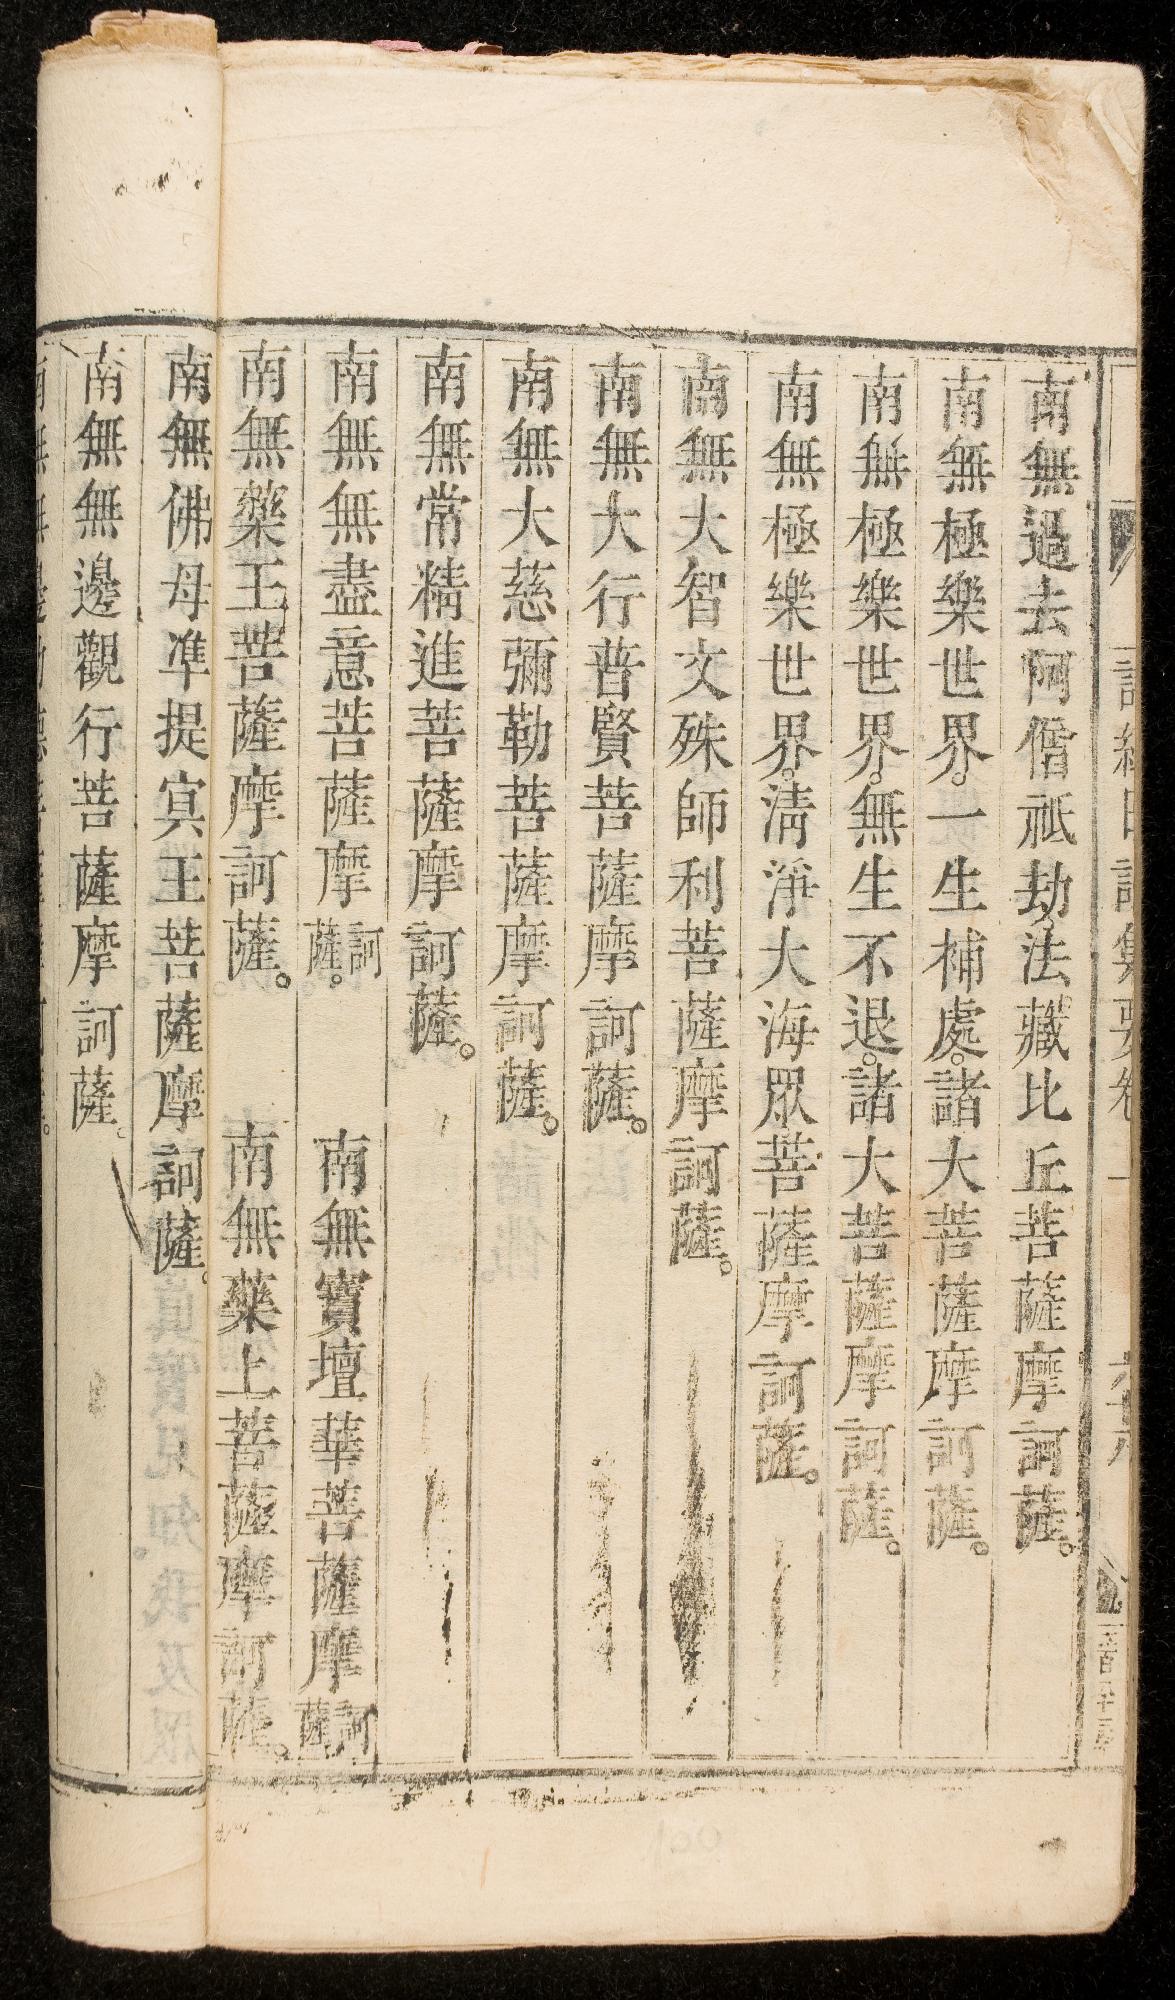 南無過去阿僧祇劫法藏比丘菩薩摩訶薩。
南無極樂世界。一生補處。諸大菩薩摩訶薩。
南無極樂世界。無生不退。諸大菩薩摩訶薩。
南無極樂世界。清淨大海眾菩薩摩訶薩。
南無大智文殊師利菩薩摩訶薩。
南無大行普賢菩薩摩訶薩。
南無大慈彌勒菩薩摩訶薩。
南無常精進菩薩摩訶薩。
南無無盡意菩薩摩訶薩。 南無寶壇華菩薩摩訶薩
南無藥王菩薩摩訶薩。 南無藥上菩薩摩訶薩。
南無佛母準提冥王菩薩摩訶薩。
南無無邊觀行菩薩摩訶薩。